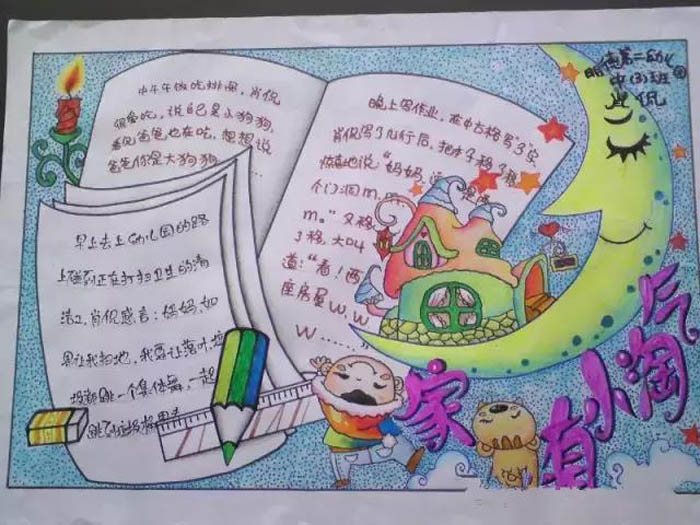 中午午做吃排骨,肖侃
很爱吃,说自己是小狗狗,
看见爸爸也在吃,想想说
爸爸你是大狗狗……
早上去上幼儿园的路
上碰到正在打扫卫生的清
洁工,肖侃感言:妈妈,如
果让我扫地,我要让落叶,垃
圾都跳一个集体舞,一起
跳到垃圾桶里去
晚上写作业,在田字格写"3"字,
肖侃写了几行后,把本子移了移,
惊喜地说:"妈妈,
个门洞m,m,
m。"又移
了移,大叫
道:"看!两
座房屋w,w
w……
第二幼儿园
中(3)班
肖侃
家有小淘气